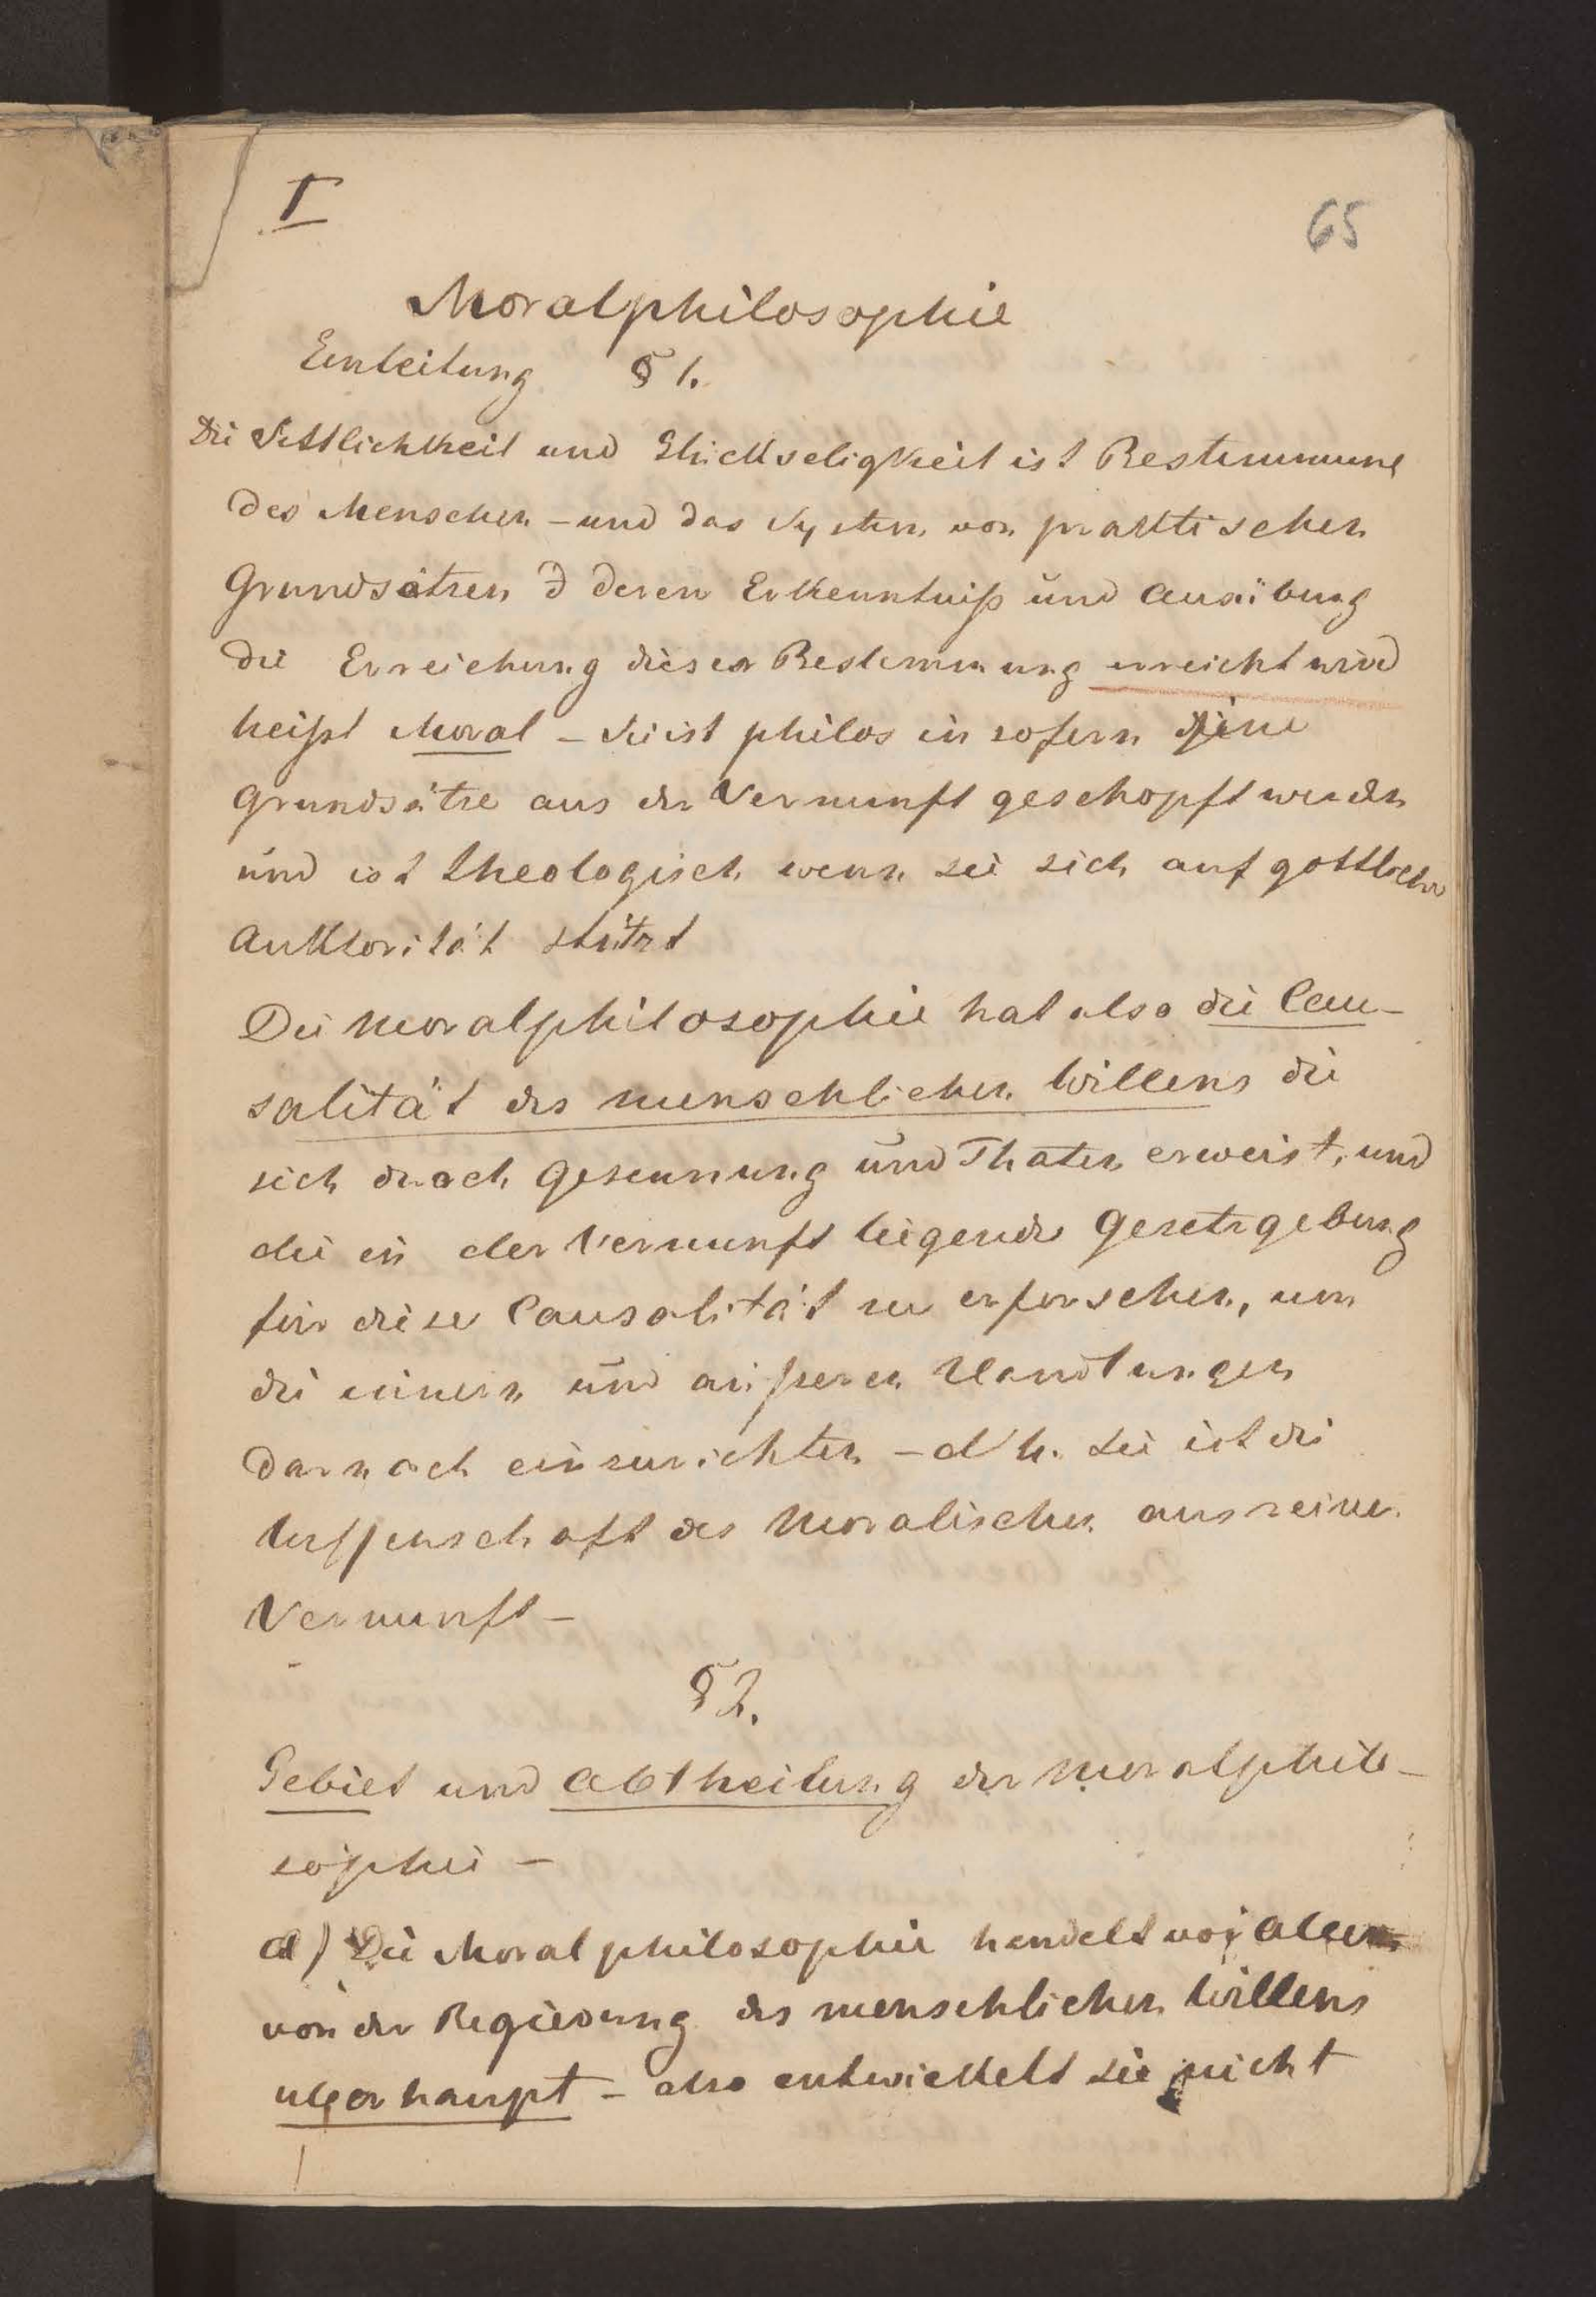 I
65
Moralphilosophie
Einleitung § 1.
Die Sittlichkeit und Glückseligkeit ist Bestimmung
des Menschen – und das System von praktischen
Grundsätzen d deren Erkenntniß und Ausübung
die Erreichung dieser Bestimmung erreicht wird
heißt Moral – Sie ist philos in sofern ihre
Grundsätze aus der Vernunft geschopft werden
und ist theologisch wenn sie sich auf gottliche
Auktorität stützt
Die Moralphilosophie hat also die Cau-
salität des menschlichen Willens die
sich durch Gesinnung und Thaten erweist, und
die in der Vernunft liegende Gesetzgebung
für diese Causalität zu erforschen, um
die innern und äußeren Handlungen
darnach einzurichten – d h. sie ist die
Wissenschaft des Moralischen aus reiner
Vernunft –
§ 2.
Gebiet und Abtheilung der Moralphilo-
sophie –
a) Die Moralphilosophie handelt vor Allem
von der Regierung des menschlichen Willens
uberhaupt – also entwickelt sie nicht